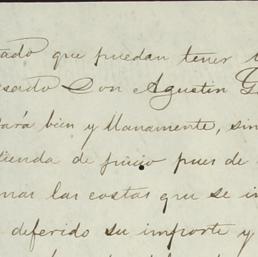 tado que puedan tener
esado Don Agustin G
tará bien y llanamente, sin
tienda de juicio pues de
nar las costas que se i
deferido su importe y